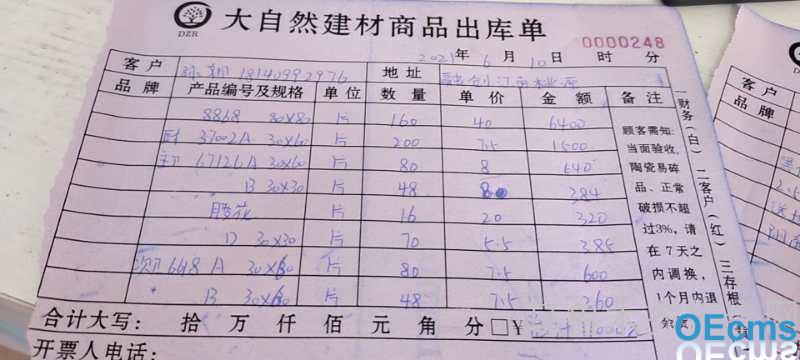 DZR
大自然建材商品出库单
0000248
2021年6月10日 时 分
客户 18140992976 地址
品牌 产品编号及规格 单位 数量 单价 金额 备注
8868 80x80 片 160 40 6400
37002A 30x60 片 200 7.5 1500
67126A 30x60 片 80 8 640
B 30x30 片 48 8 384
腰花 片 16 20 320
D 30x30 片 70 5.5 385
6618A 30x60 片 80 7.5 600
B 30x60 片 48 7.5 360
顾客需知:
当面验收,
陶瓷易碎
品、正常
破损不超
过3%,请
在7天之
内调换,
1个月内退
一财务(白) 二客户(红) 三存根
合计大写: 拾 万 仟 佰 元 角 分 □¥ 总计11000元
开票人电话:
OEcms
OEcms